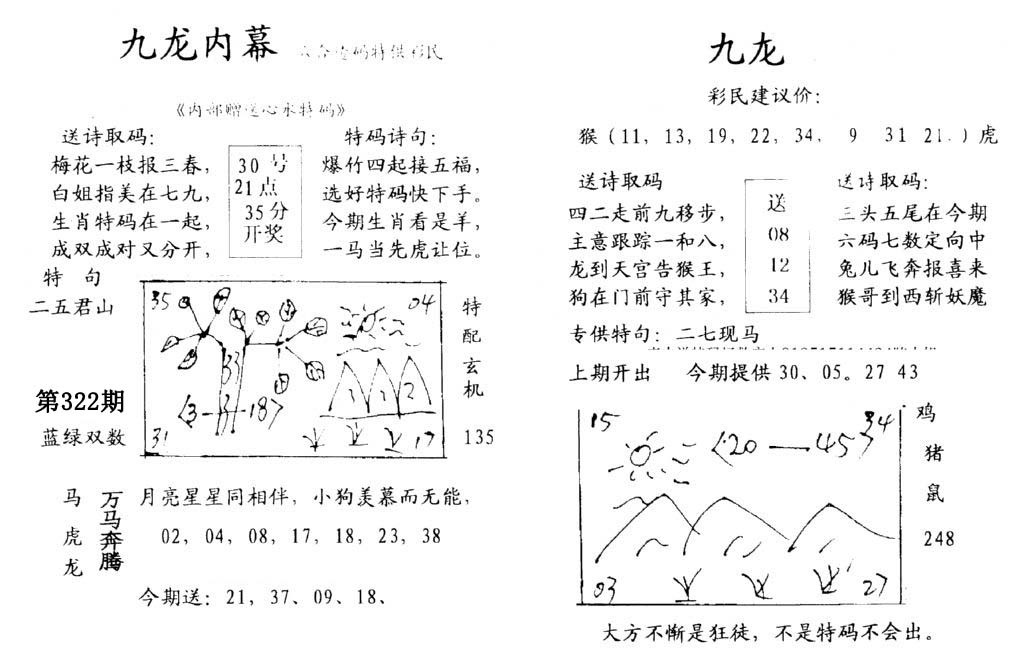 九龙内幕
特供彩民
《内部赠送心水特码》
送诗取码：
梅花一枝报三春，
白姐指美在七九，
生肖特码在一起，
成双成对又分开，
30号
21点
35分
开奖
特码诗句：
爆竹四起接五福，
选好特码快下手。
今期生肖看是羊，
一马当先虎让位。
特 句
二五君山
第322期
蓝绿双数
35
04
33
<3-31-187
31
17
特
配
玄
机
135
马
虎
龙
万马奔腾
月亮星星同相伴，小狗羡慕而无能，
02, 04, 08, 17, 18, 23, 38
今期送：21, 37、09、18、
九龙
彩民建议价：
猴（11, 13, 19, 22, 34, 9 31 21.）虎
送诗取码
四二走前九移步，
主意跟踪一和八，
龙到天宫告猴王，
狗在门前守其家，
送
08
12
34
送诗取码：
三头五尾在今期
六码七数定向中
兔儿飞奔报喜来
猴哥到西斩妖魔
专供特句：二七现马
上期开出 今期提供 30、05。27 43
15
34
<20—45>
03
27
鸡
猪
鼠
248
大方不惭是狂徒，不是特码不会出。